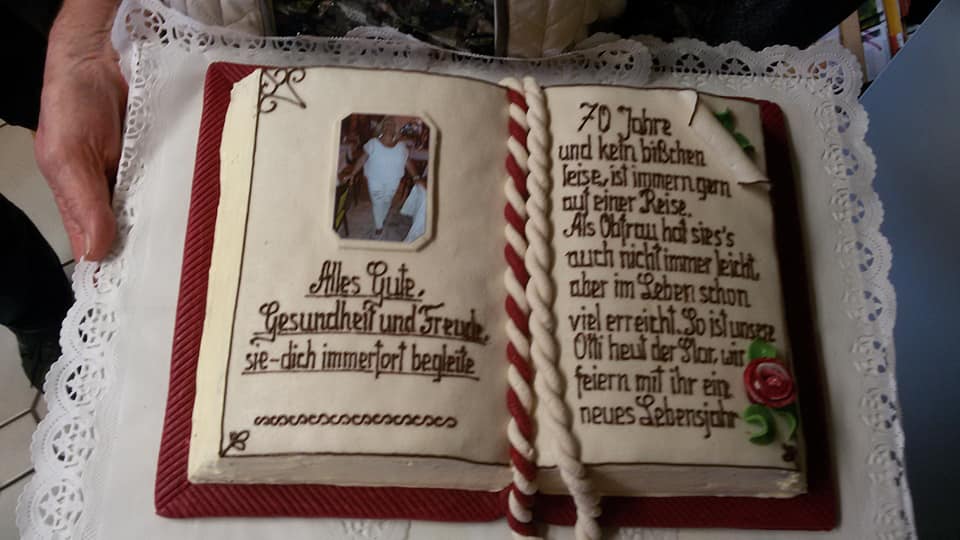 Alles Gute,
Gesundheit und Freude,
sie-dich immerfort begleite
70 Jahre
und kein bißchen
leise, ist immern gern
auf einer Reise.
Als Obfrau hat sies's
auch nicht immer leicht,
aber im Leben schon
viel erreicht. So ist unsere
Otti heut der Star, wir
feiern mit ihr ein
neues Lebensjahr